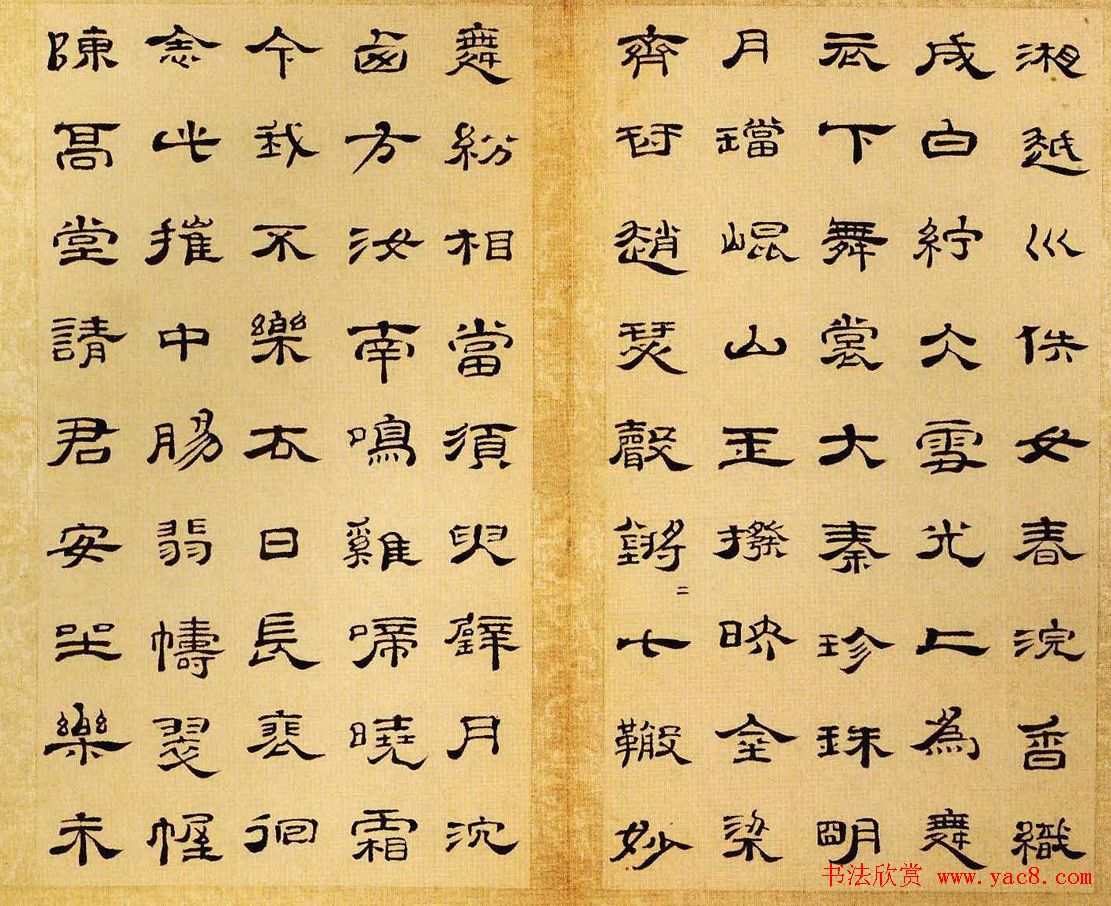 湘越巛女春浣香織
成白紵火雪光上為舞
衣下舞裳大秦珍珠明
月璫崐山玉撥映金梁
齊瑟趙琴聲鏘二七鞶妙
舞紛相當須臾璧月沈
西方汝南鳴雞啼曉霜
今我不樂去日長裵徊
念此摧中腸翡幬翠幄
陳高堂請君安坐樂未
书法欣赏 www.yac8.com